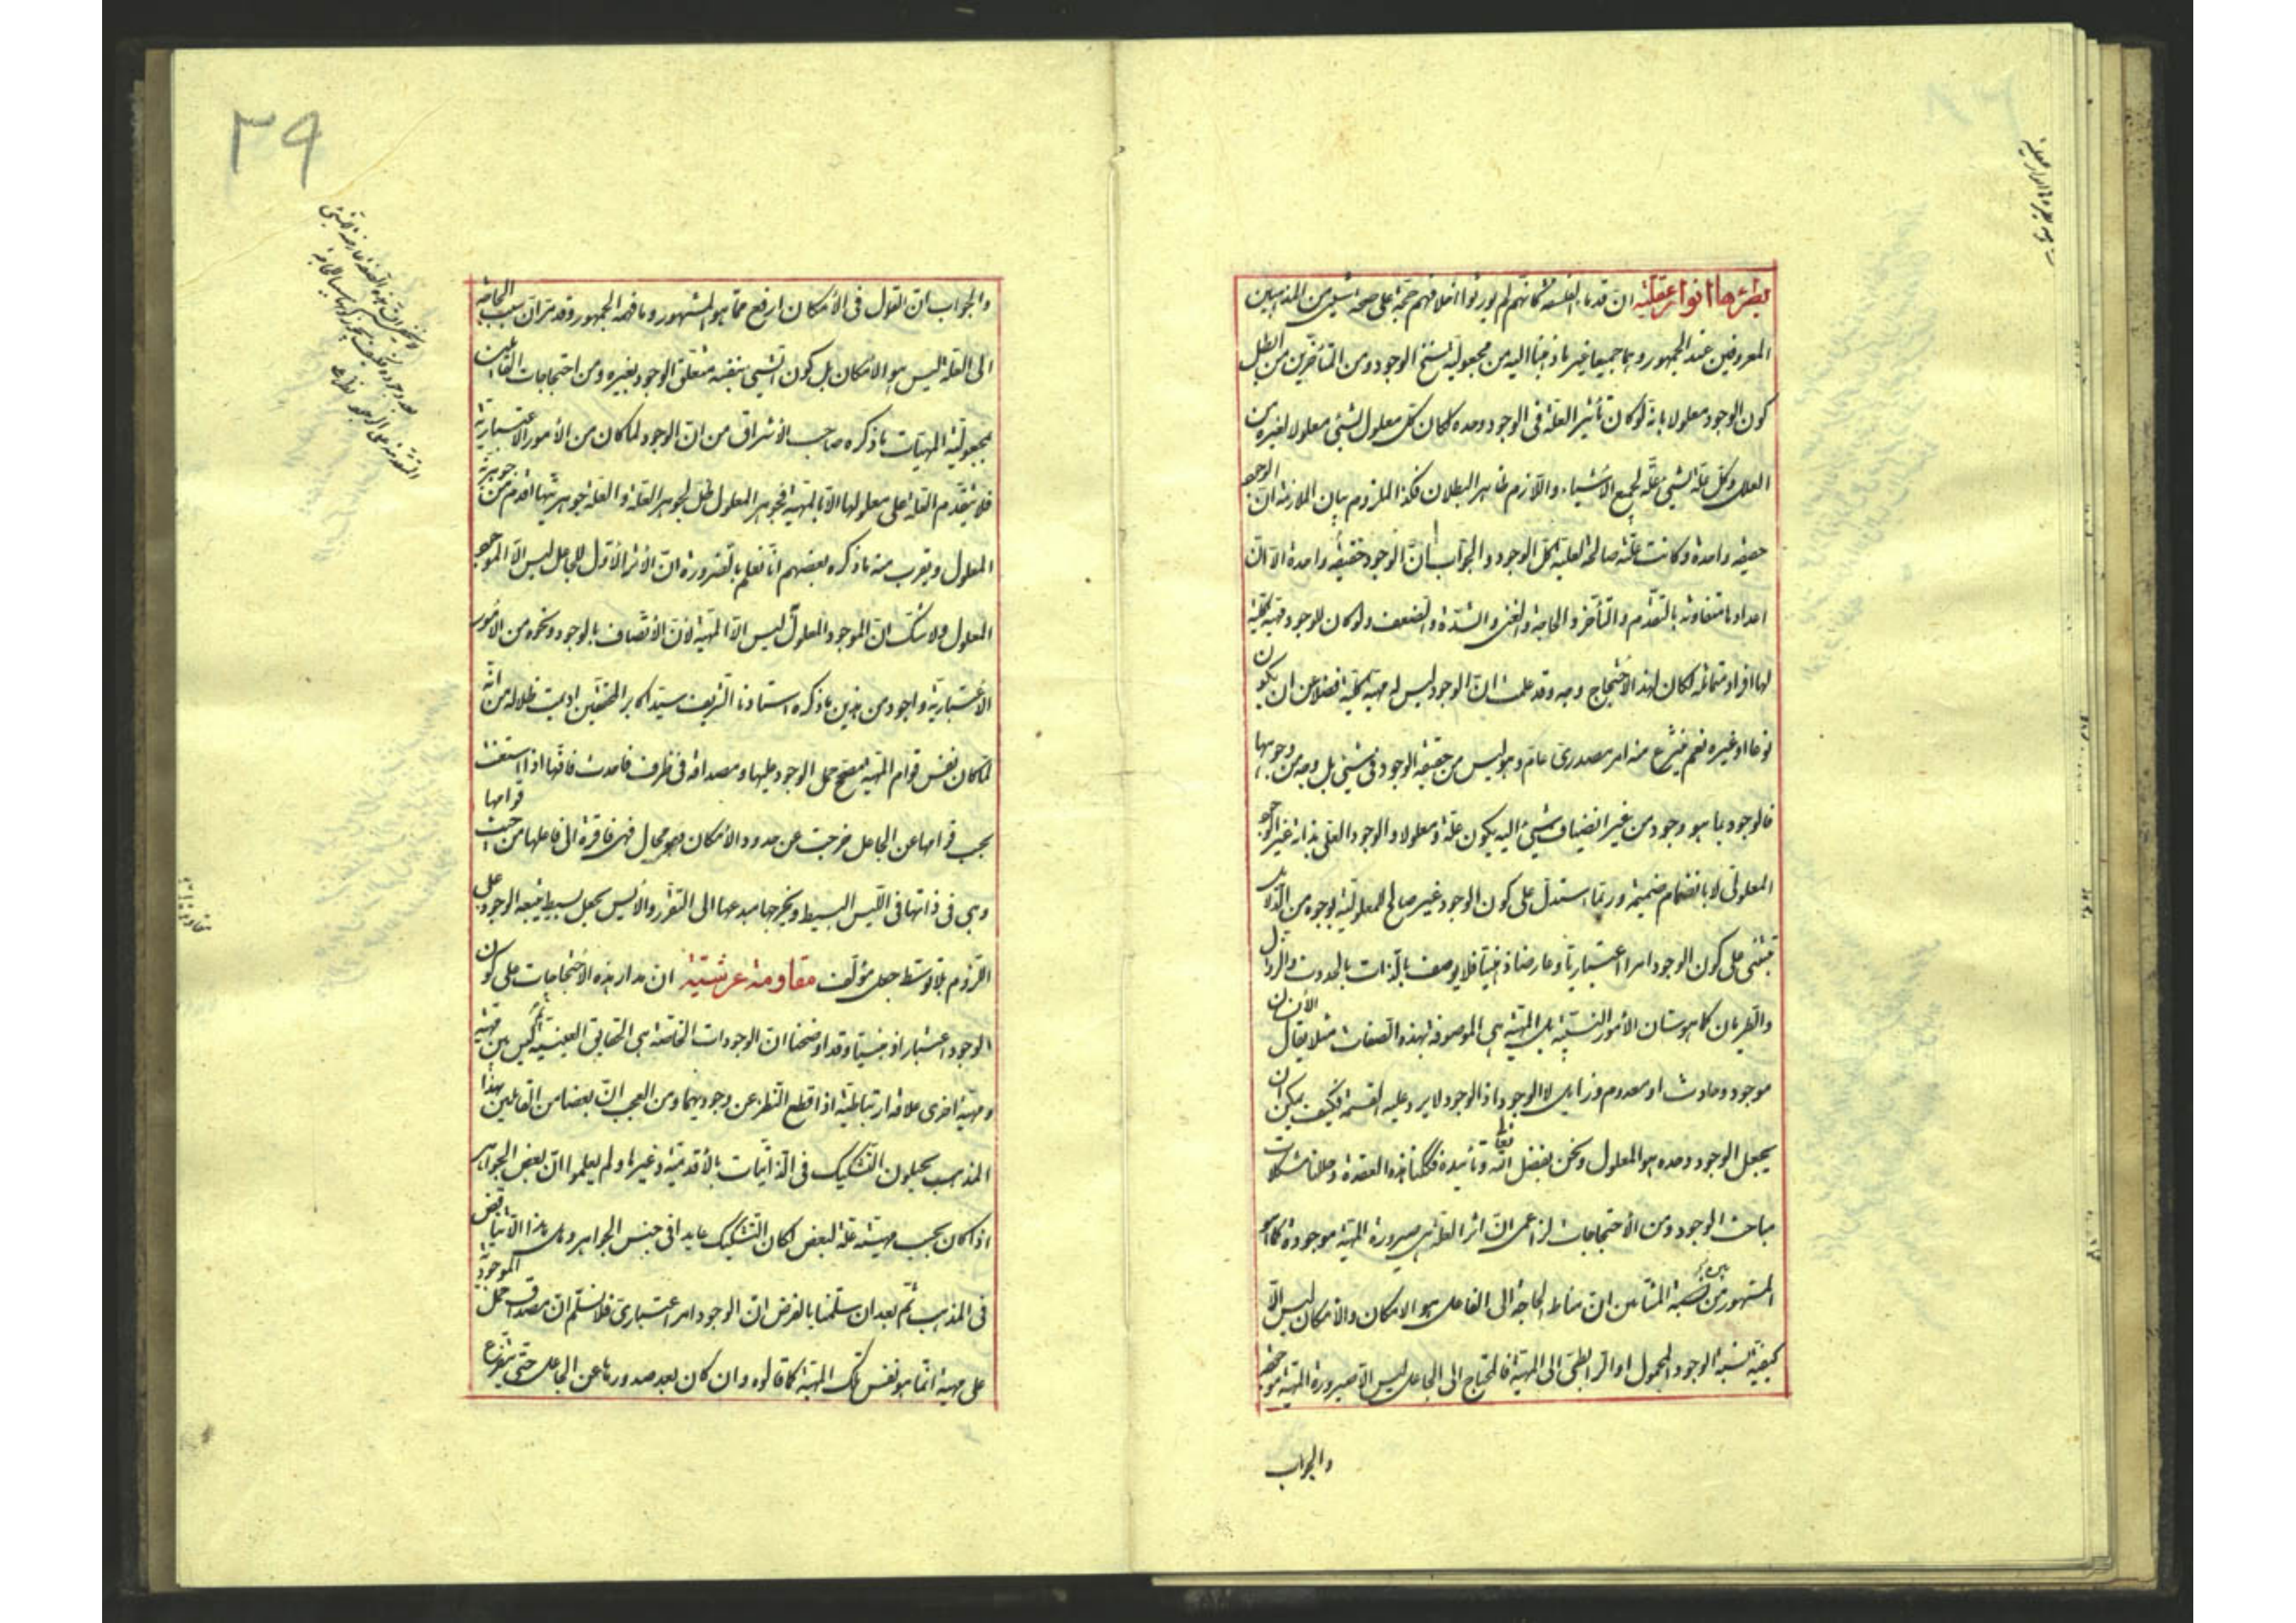 ان قدماء الفلسفة كانهم لم يورثوا اخلافهم حجة على صحة شيئ من المذهبين
المعروفين عند الجمهور وهما جميعا غير ما ذهبنا اليه من مجعولية نسخ الوجود ومن المتأخرين من ابطل
كون الوجود معلولا بانه لو كان تأثير العلة فى الوجود وحده لكان كل معلول لشئ معلولا لغيره من
العلل وكل علة لشئ علة لجميع الأشياء واللازم ظاهر البطلان فكذا الملزوم بيان الملازمة ان الوجود
حقيقة واحدة وكانت علته صالحة لعلية كل الوجود والجواب ان الوجود حقيقة واحدة الا ان
اعدادها متفاوتة بالتقدم والتأخر والحاجة والغنى والشدة والضعف ولو كان للوجود مهية كلية
لها افراد متماثلة لكان لهذا الاحتجاج وجه وقد علمت ان الوجود ليس له مهية كلية فضلا عن ان يكون
نوعا او غيره نعم ينتزع منه امر مصدرى عام وهو ليس من حقيقة الوجود فى شئ بل وجه من وجوهها
فالوجود بما هو وجود من غير انضياف شئ اليه يكون علة ومعلولا والوجود العلى بذاته غير الوجود
المعلولى لا بانضمام ضميمة وربما استدل على كون الوجود غير صالح للمعلولية بوجوه من الدلائل
تبتنى على كون الوجود امرا اعتباريا وعارضا ذهنيا فلا يوصف بالذات بالحدوث والزوال
والطريان كما هو شان الأمور النسبية بل المهية هى الموصوفة بهذه الصفات مثلا يقال الأنسان
موجود وحادث او معدوم وزايل لا الوجود اذ الوجود لا يرد عليه القسمة فكيف يمكن ان
يجعل الوجود وحده هو المعلول ونحن بفضل الله تعالى وتأييده فككنا هذه العقدة وحللنا مشكلات
مباحث الوجود ومن الأحتجاجات لزاعمى ان اثر العلة هى صيرورة المهية موجودة كما هو
المشهور من المشائين ان مناط الحاجة الى الفاعل هو الامكان والأمكان ليس الا
كيفية نسبة الوجود المحمول او الرابطى الى المهية فالمحتاج الى الجاعل ليس الا صيرورة المهية موجودة
والجواب
٣٩
والجواب ان القول فى الأمكان ارفع مما هو المشهور وما فهمه الجمهور وقد مر ان سبب الحاجة
الى العلة ليس هو الامكان بل كون الشئ بنفسه متعلق الوجود بغيره ومن احتجاجات القائلين
بمجعولية المهيات ما ذكره صاحب الأشراق من ان الوجود لما كان من الأمور الأعتبارية
فلا يتقدم العلة على معلولها الا بالمهية فجوهر المعلول ظل لجوهر العلة والعلة جوهريتها اقدم من جوهرية
المعلول ويقرب منه ما ذكره بعضهم انا نعلم بالضرورة ان الأثر الأول للجاعل ليس الا الموجود
المعلول ولا شك ان الموجود المعلول ليس الا المهية لان الأتصاف بالوجود ونحوه من الأمور
الأعتبارية واجود من هذين ما ذكره استادنا الشريف سيد اكابر المحققين اديمت ظلاله من انه
لما كان نفس قوام المهية مصحح حمل الوجود عليها ومصداقه فى ظرف ما فاحدث فاقها اذا استغنت
بحسب قوامها عن الجاعل خرجت عن حدود الأمكان وهو محال فهى فاقرة الى فاعلها من حيث قوامها
وهى فى ذاتها فى الليس البسيط ويخرجها مبدعها الى التقرر والأيس بجعل بسيط يتبعه الوجود على
اللزوم بلا توسط جعل مؤلف مقاومة عرشية ان مدار هذه الأحتجاجات على كون
الوجود اعتبارا ذهنيا وقد اوضحنا ان الوجودات الخاصة هى الحقايق العينية ثم ليس بين مهية
ومهية اخرى علاقة ارتباطية اذا قطع النظر عن وجوديهما ومن العجب ان بعضا من القائلين بهذا
المذهب يحيلون التشكيك فى الذاتيات بالأقدمية وغيرها ولم يعلموا ان بعض الجواهر
اذا كان بحسب مهيته علة لبعض لكان التشكيك عايدا فى جنس الجواهر وهل هذا الا تناقض
فى المذهب ثم بعد ان سلمنا بالفرض ان الوجود امر اعتبارى فلا نسلم ان مصداق حمل الموجودية
على مهية انما هو نفس تلك المهية كما قالوه وان كان بعد صدورها عن الجاعل حتى يتفرع